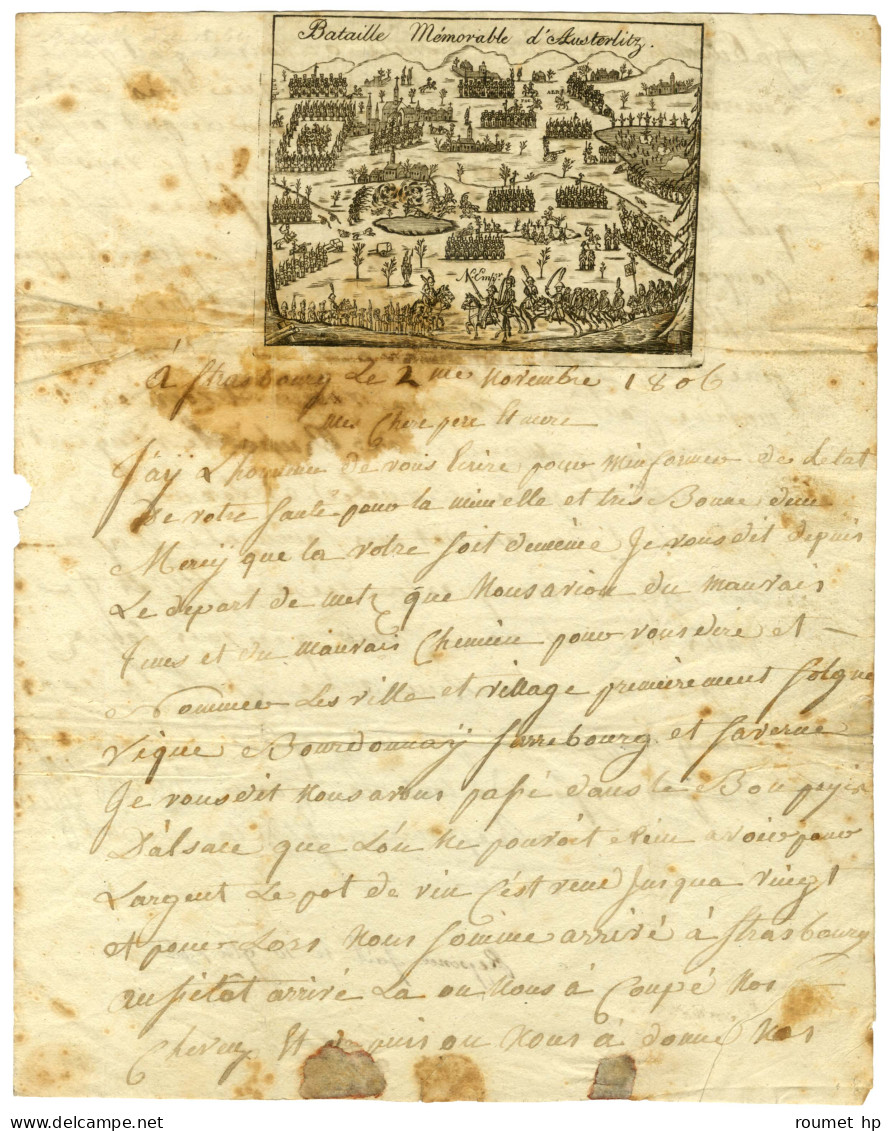 Bataille Mémorable d'Austerlitz.
N. Emp.r
à Strasbourg Le 2 me novembre 1806
mes Chere pere Et mere
J'aÿ Lhonneur de vous Ecrire pour minformer de Letat
De votre santé pour la mienelle et très Bonne dieu
Mercÿ que la votre soit demême Je vous dit depuis
Le depart de metz que Nous avion du mauvais
tmes et du mauvais Chemien pour vous dire et
Nommer Les ville et village premièrement Solgne
Vique Bourdonnaÿ Sarrebourg et Saverne
Je vous dit Nous avons passé dans le Bon payis
D'alsace que L'on Ne pouvoit Rien avoir pour
L'argent Le pot de vin C'est vend Jusqua vingt
et pour Lors Nous somme arrivé à Strasbourg
aussietôt arrivé Là on Nous à Coupé Nos
Cheveu Et depuis on Nous à donné Nos
delcampe.net
roumet hp